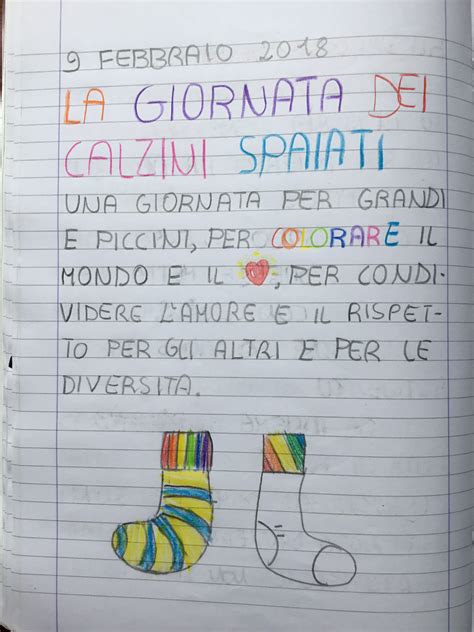 9 FEBBRAIO 2018
LA GIORNATA DEI
CALZINI SPAIATI
UNA GIORNATA PER GRANDI
E PICCINI, PER COLORARE IL
MONDO E IL , PER CONDI-
VIDERE L'AMORE E IL RISPET-
TO PER GLI ALTRI E PER LE
DIVERSITA.